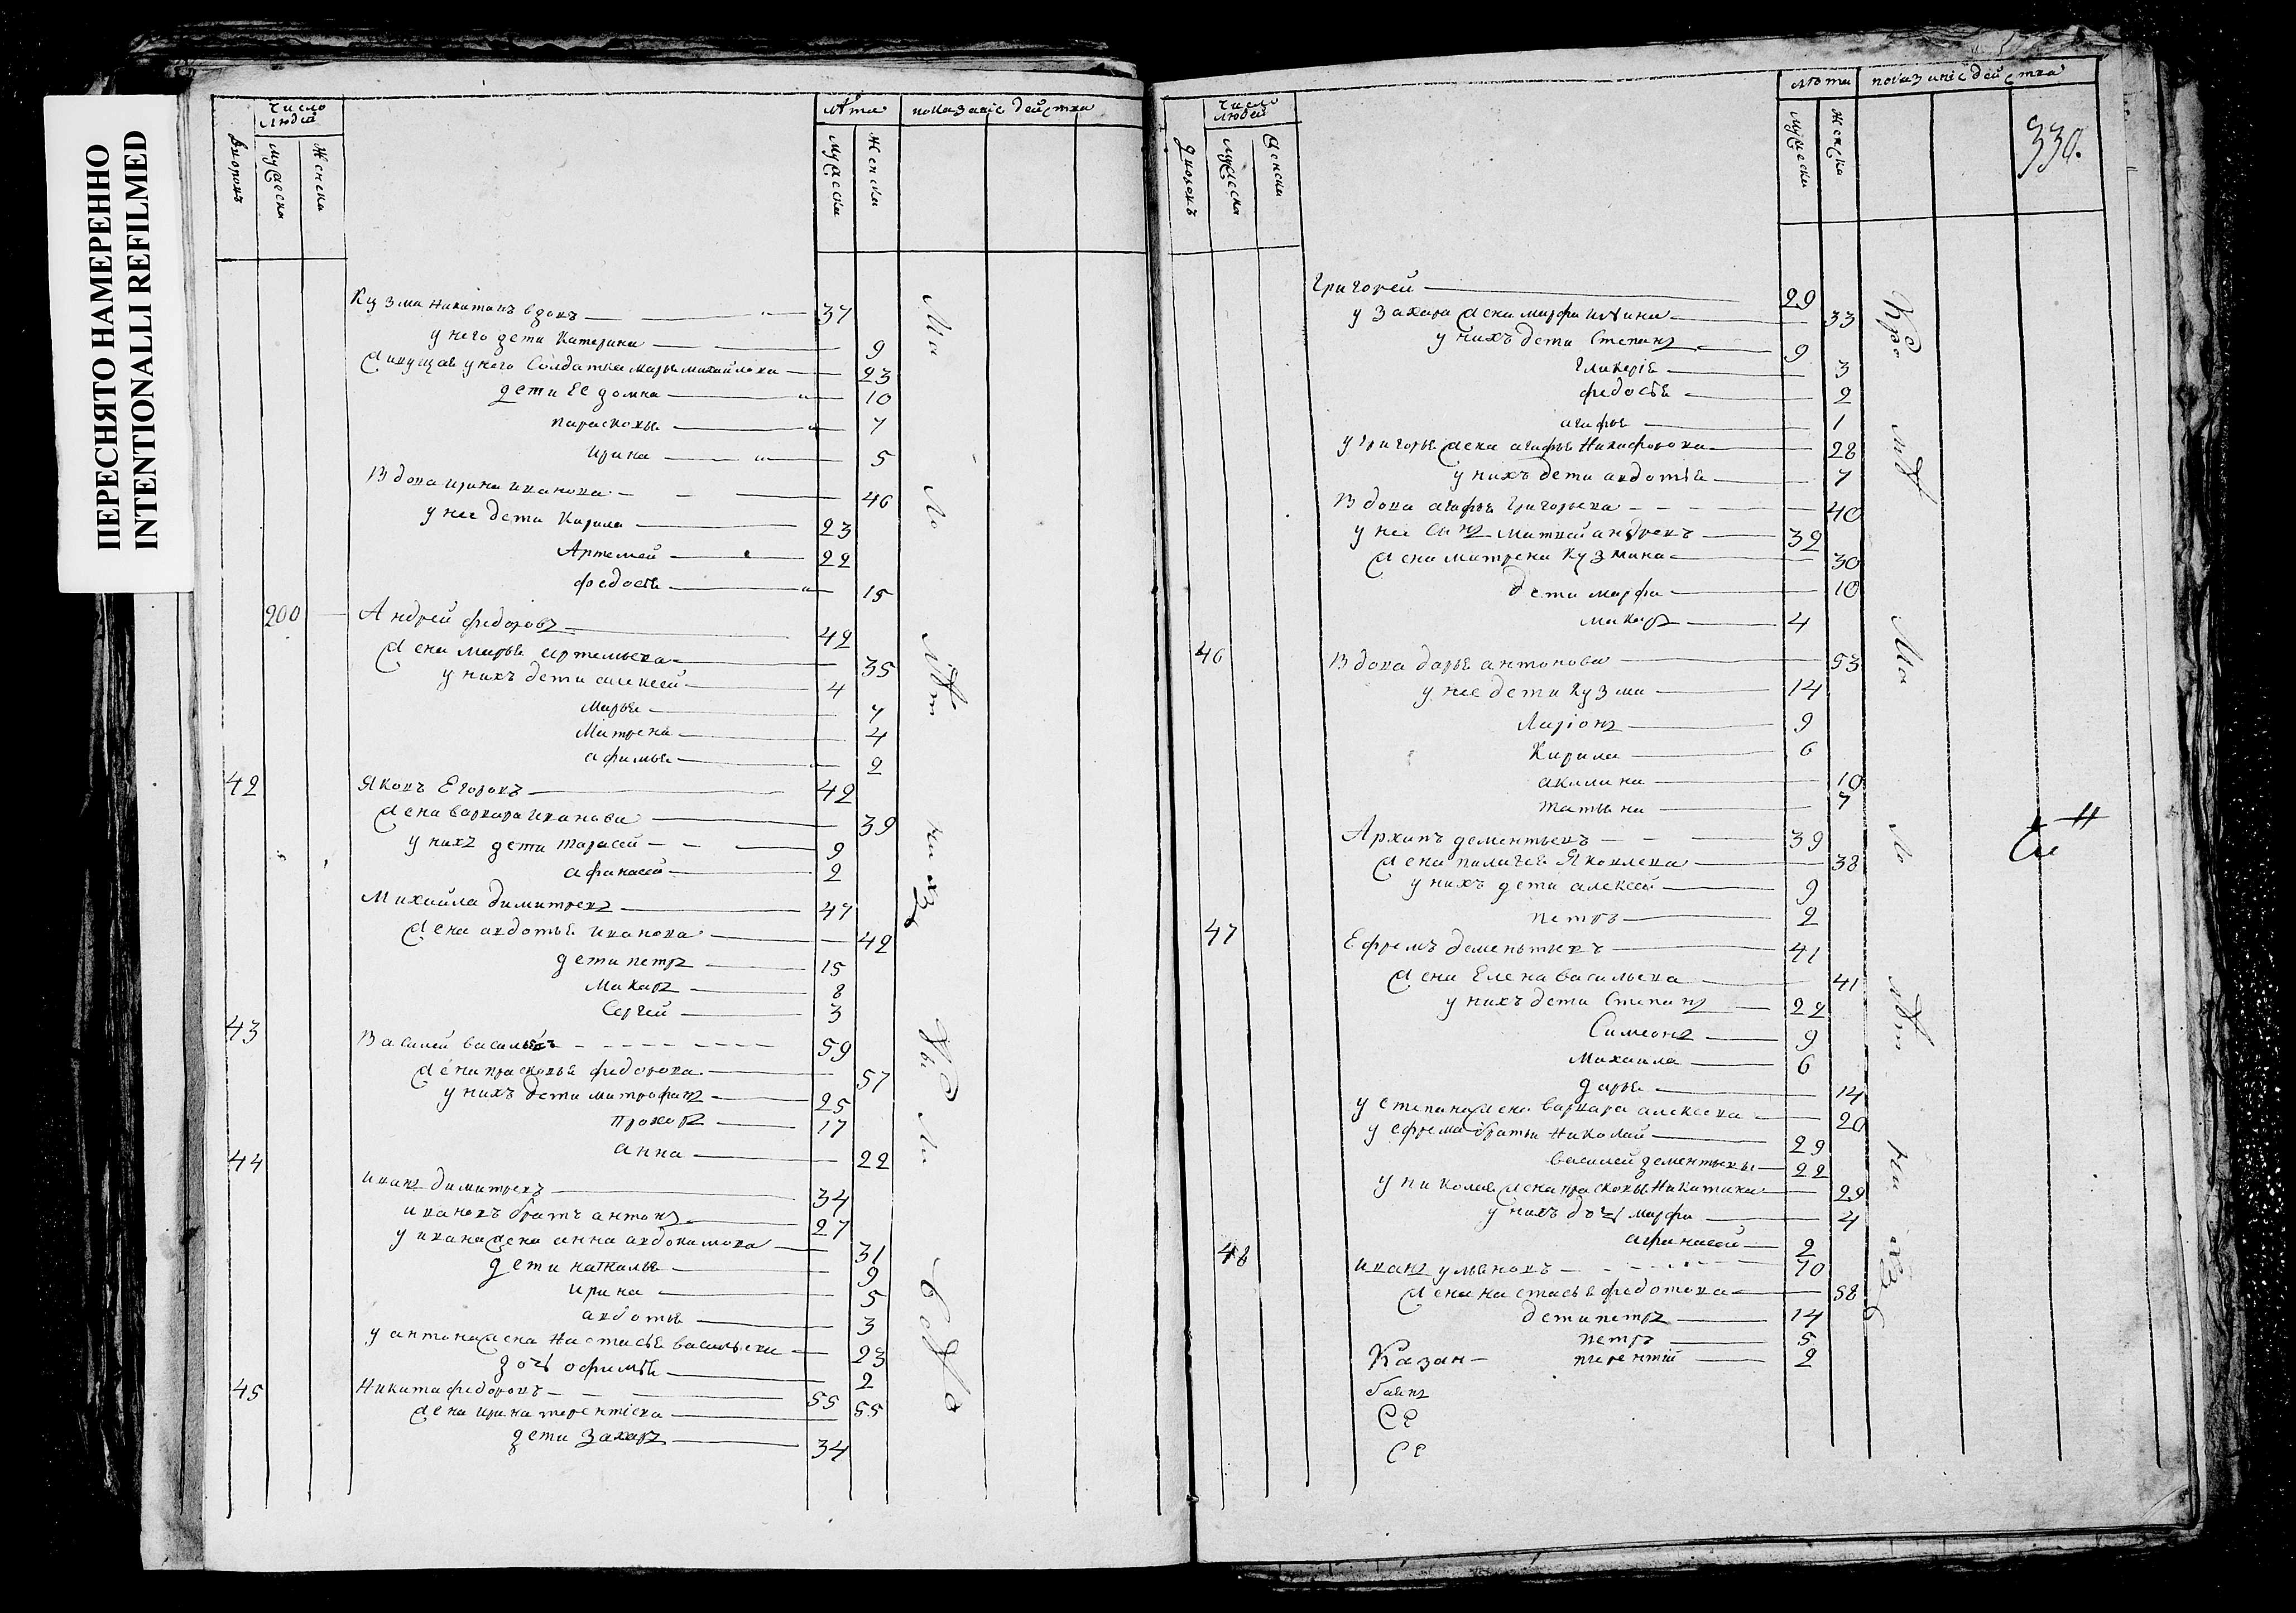 ПЕРЕСНЯТО НАМЕРЕННО
INTENTIONALLI REFILMED
число людей
лѣта
показаніе действа
дворовъ
мужеска
женска
мужеска
женска
Кузма Никитинъ вдовъ 37
у него дети Катерина 9
живущая у него Солдатка Марья михайлова 23
дети Ее домна 10
парасковья 7
ирина 5
Вдова ирина иванова 46
у нее дети Кирила 23
Артемей 22
федосья 15
200 Андрей федоровъ 42
жена марья артемьева 35
у нихъ дети алексей 4
Марья 7
Матрена 4
афимья 2
42 Яковъ Егоровъ 42
жена варвара иванова 39
у нихъ дети тарасей 9
афанасей 2
Михайла димитревъ 47
жена авдотья иванова 42
дети петръ 15
Макаръ 8
Сергей 3
43 Василей васильевъ 59
жена прасковья федорова 57
у нихъ дети митрофанъ 25
прохоръ 17
анна 22
44 иванъ димитревъ 34
ивановъ братъ антонъ 27
у ивана жена анна авдокимова 31
дети наталья 9
ирина 5
авдотья 3
у антона жена Настасья васильева 23
дочь офимья 2
45 Никита федоровъ 55
жена ирина терентіева 55
дети Захаръ 34
Ма
ло
лѣт
на
ихъ
не
бы
число людей
лѣта
показаніе действа
дворовъ
мужеска
женска
мужеска
женска
330.
Григорей 29
у Захара жена марфа ильина 33
у нихъ дети Степанъ 9
гликерія 3
федосья 2
агафья 1
у григорья жена агафья Никифорова 28
у нихъ дети авдотья 7
Вдова агафья григорьева 40
у нее сынъ матвей андревъ 32
жена матрена кузмина 30
дети марфа 10
макаръ 4
46 Вдова дарья антонова 53
у нее дети Кузма 14
Ларіонъ 9
Кирила 6
акилина 10
татьяна 7
Архипъ дементьевъ 39
жена палагея Яковлева 38
у нихъ дети алексей 9
петръ 2
47 Ефремъ деменьтьевъ 41
жена Елена васильева 41
у нихъ дети Степанъ 22
Симеонъ 9
Михаила 6
дарья 14
у степана жена варвара алексева 20
у ефрема братья Николай 29
василей дементьевы 22
у николая жена прасковья Никитина 29
у нихъ дочь марфа 4
афанасей 2
48 иванъ ульяновъ 70
жена настасья федотова 58
дети петръ 14
петръ 5
терентій 2
Казан-
СЕ
СЕ
Кро
мѣ
Ма
ло
лѣт
на
ихъ